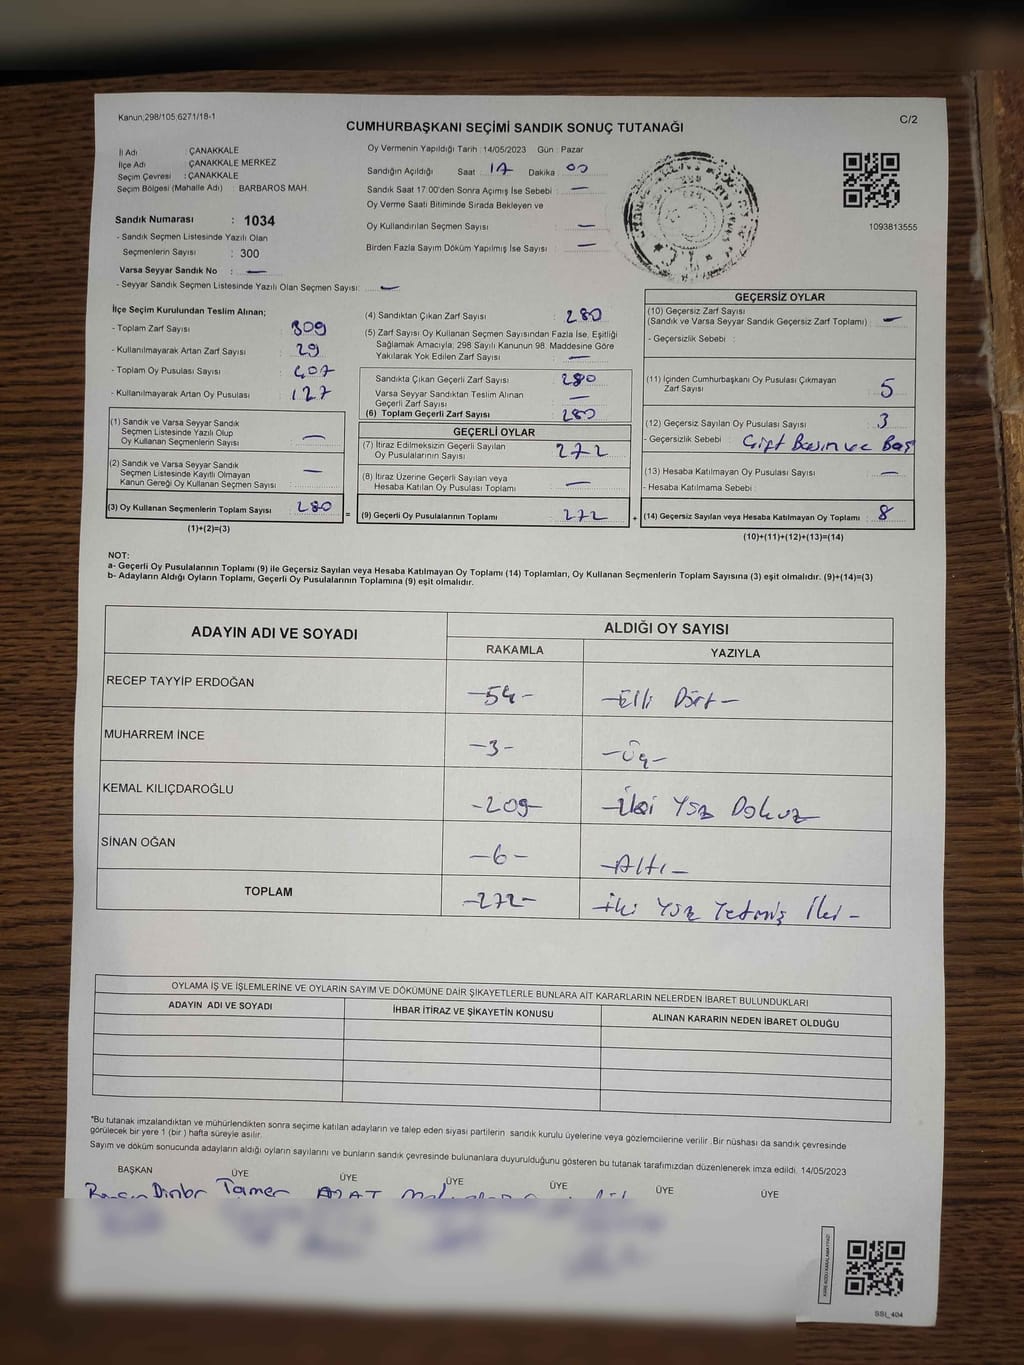 Kanun;298/105,6271/18-1
C/2
CUMHURBAŞKANI SEÇİMİ SANDIK SONUÇ TUTANAĞI
İl Adı : ÇANAKKALE
İlçe Adı : ÇANAKKALE MERKEZ
Seçim Çevresi : ÇANAKKALE
Seçim Bölgesi (Mahalle Adı) : BARBAROS MAH.
Sandık Numarası : 1034
- Sandık Seçmen Listesinde Yazılı Olan
Seçmenlerin Sayısı : 300
Varsa Seyyar Sandık No : —
- Seyyar Sandık Seçmen Listesinde Yazılı Olan Seçmen Sayısı: —
Oy Vermenin Yapıldığı Tarih : 14/05/2023 Gün : Pazar
Sandığın Açıldığı Saat 17 Dakika : 00
Sandık Saat 17:00'den Sonra Açımış İse Sebebi : —
Oy Verme Saati Bitiminde Sırada Bekleyen ve
Oy Kullandırılan Seçmen Sayısı : —
Birden Fazla Sayım Döküm Yapılmış İse Sayısı : —
1093813555
İlçe Seçim Kurulundan Teslim Alınan;
- Toplam Zarf Sayısı : 309
- Kullanılmayarak Artan Zarf Sayısı : 29
- Toplam Oy Pusulası Sayısı : 407
- Kullanılmayarak Artan Oy Pusulası : 127
(1) Sandık ve Varsa Seyyar Sandık
Seçmen Listesinde Yazılı Olup
Oy Kullanan Seçmenlerin Sayısı : —
(2) Sandık ve Varsa Seyyar Sandık
Seçmen Listesinde Kayıtlı Olmayan
Kanun Gereği Oy Kullanan Seçmen Sayısı : —
(3) Oy Kullanan Seçmenlerin Toplam Sayısı : 280
(1)+(2)=(3)
=
(4) Sandıktan Çıkan Zarf Sayısı : 280
(5) Zarf Sayısı Oy Kullanan Seçmen Sayısından Fazla İse, Eşitliği
Sağlamak Amacıyla, 298 Sayılı Kanunun 98. Maddesine Göre
Yakılarak Yok Edilen Zarf Sayısı : —
Sandıkta Çıkan Geçerli Zarf Sayısı : 280
Varsa Seyyar Sandıktan Teslim Alınan
Geçerli Zarf Sayısı : —
(6) Toplam Geçerli Zarf Sayısı : 280
GEÇERLİ OYLAR
(7) İtiraz Edilmeksizin Geçerli Sayılan
Oy Pusulalarının Sayısı : 272
(8) İtiraz Üzerine Geçerli Sayılan veya
Hesaba Katılan Oy Pusulası Toplamı : —
(9) Geçerli Oy Pusulalarının Toplamı : 272
+
GEÇERSİZ OYLAR
(10) Geçersiz Zarf Sayısı
(Sandık ve Varsa Seyyar Sandık Geçersiz Zarf Toplamı) : —
- Geçersizlik Sebebi :
(11) İçinden Cumhurbaşkanı Oy Pusulası Çıkmayan
Zarf Sayısı : 5
(12) Geçersiz Sayılan Oy Pusulası Sayısı : 3
- Geçersizlik Sebebi : Çift Basım ve Boş
(13) Hesaba Katılmayan Oy Pusulası Sayısı : —
- Hesaba Katılmama Sebebi :
(14) Geçersiz Sayılan veya Hesaba Katılmayan Oy Toplamı : 8
(10)+(11)+(12)+(13)=(14)
NOT:
a- Geçerli Oy Pusulalarının Toplamı (9) ile Geçersiz Sayılan veya Hesaba Katılmayan Oy Toplamı (14) Toplamları, Oy Kullanan Seçmenlerin Toplam Sayısına (3) eşit olmalıdır. (9)+(14)=(3)
b- Adayların Aldığı Oyların Toplamı, Geçerli Oy Pusulalarının Toplamına (9) eşit olmalıdır.
ADAYIN ADI VE SOYADI
ALDIĞI OY SAYISI
RAKAMLA YAZIYLA
RECEP TAYYİP ERDOĞAN -54- -Elli Dört-
MUHARREM İNCE -3- -Üç-
KEMAL KILIÇDAROĞLU -209- -İki Yüz Dokuz
SİNAN OĞAN -6- -Altı-
TOPLAM -272- -İki Yüz Yetmiş İki-
OYLAMA İŞ VE İŞLEMLERİNE VE OYLARIN SAYIM VE DÖKÜMÜNE DAİR ŞİKAYETLERLE BUNLARA AİT KARARLARIN NELERDEN İBARET BULUNDUKLARI
ADAYIN ADI VE SOYADI İHBAR İTİRAZ VE ŞİKAYETİN KONUSU ALINAN KARARIN NEDEN İBARET OLDUĞU
*Bu tutanak imzalandıktan ve mühürlendikten sonra seçime katılan adayların ve talep eden siyasi partilerin sandık kurulu üyelerine veya gözlemcilerine verilir. Bir nüshası da sandık çevresinde
görülecek bir yere 1 (bir) hafta süreyle asılır.
Sayım ve döküm sonucunda adayların aldığı oyların sayılarını ve bunların sandık çevresinde bulunanlara duyurulduğunu gösteren bu tutanak tarafımızdan düzenlenerek imza edildi. 14/05/2023
BAŞKAN ÜYE ÜYE ÜYE ÜYE ÜYE ÜYE
Tamer
SSI_404